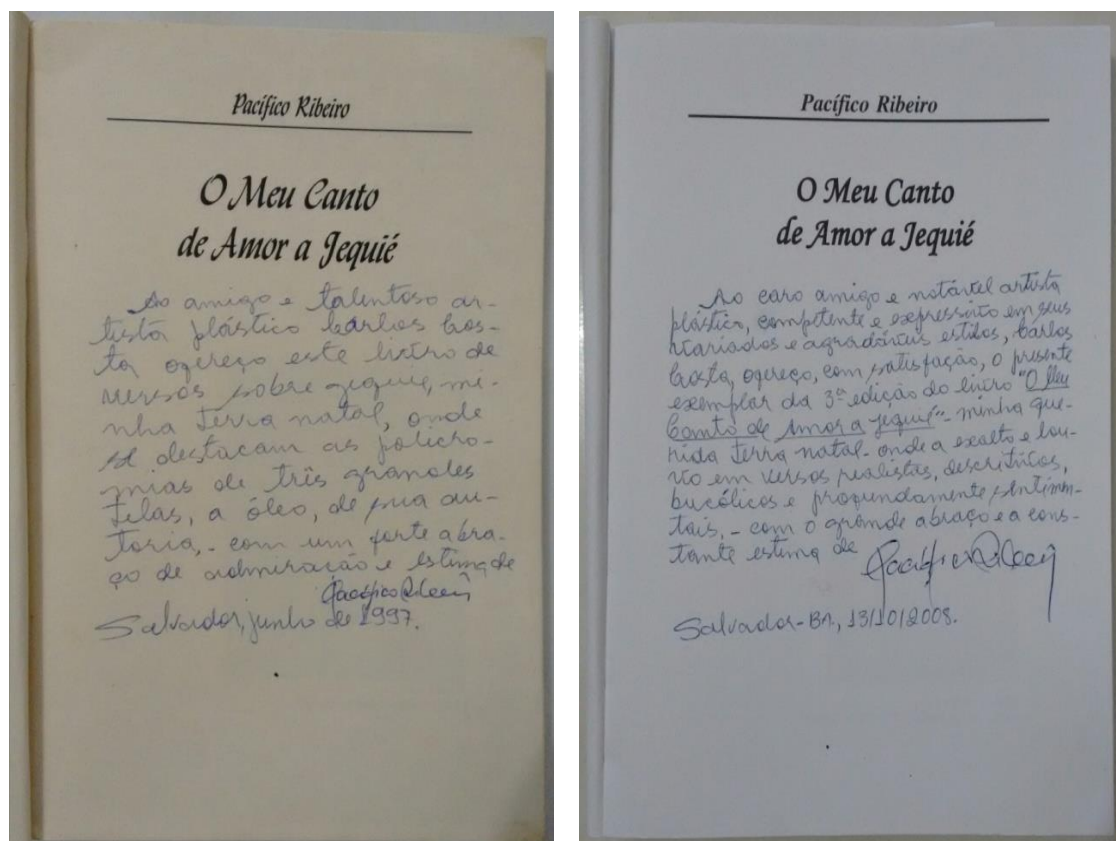 Pacífico Ribeiro
O Meu Canto
de Amor a Jequié
Ao amigo e talentoso ar-
tista plástico Carlos Cos-
ta ofereço este livro de
versos sobre Jequié, mi-
nha terra natal, onde
se destacam as policro-
mias de três grandes
telas, a óleo, de sua au-
toria, - com um forte abra-
ço de admiração e estima de
Pacífico Ribeiro
Salvador, junho de 1997.
Pacífico Ribeiro
O Meu Canto
de Amor a Jequié
Ao caro amigo e notável artista
plástico, competente e expressivo em seus
variados e agradáveis estilos, Carlos
Costa, ofereço, com satisfação, o presente
exemplar da 3ª edição do livro "O Meu
Canto de Amor a Jequié" - minha que-
rida terra natal - onde a exalto e lou-
vo em versos realistas, descritivos,
bucólicos e profundamente sentimen-
tais, - com o grande abraço e a cons-
tante estima de Pacífico Ribeiro
Salvador-BA, 13/10/2008.